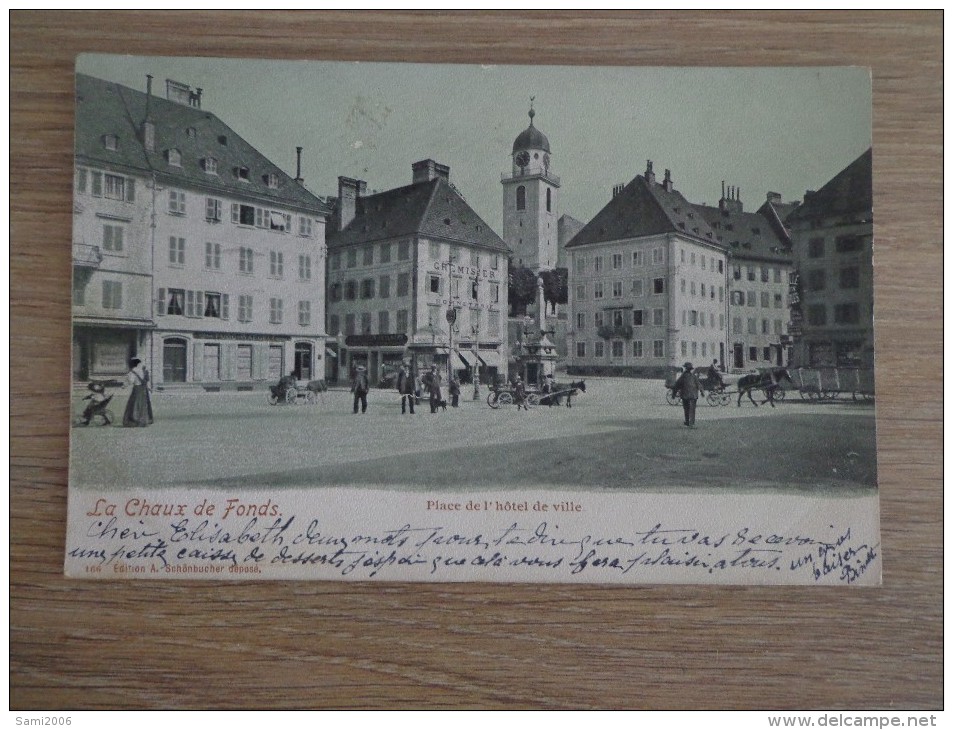 GROMISSER
La Chaux de Fonds.
Place de l'hôtel de ville
Chère Elisabeth deux mots pour te dire que tu vas recevoir
une petite caisse de desserts j'espère que cela vous fera plaisir, a tous. un gros
baiser
106 Édition A. Schönbucher déposé.
Sami2006
http://www.delcampe.net